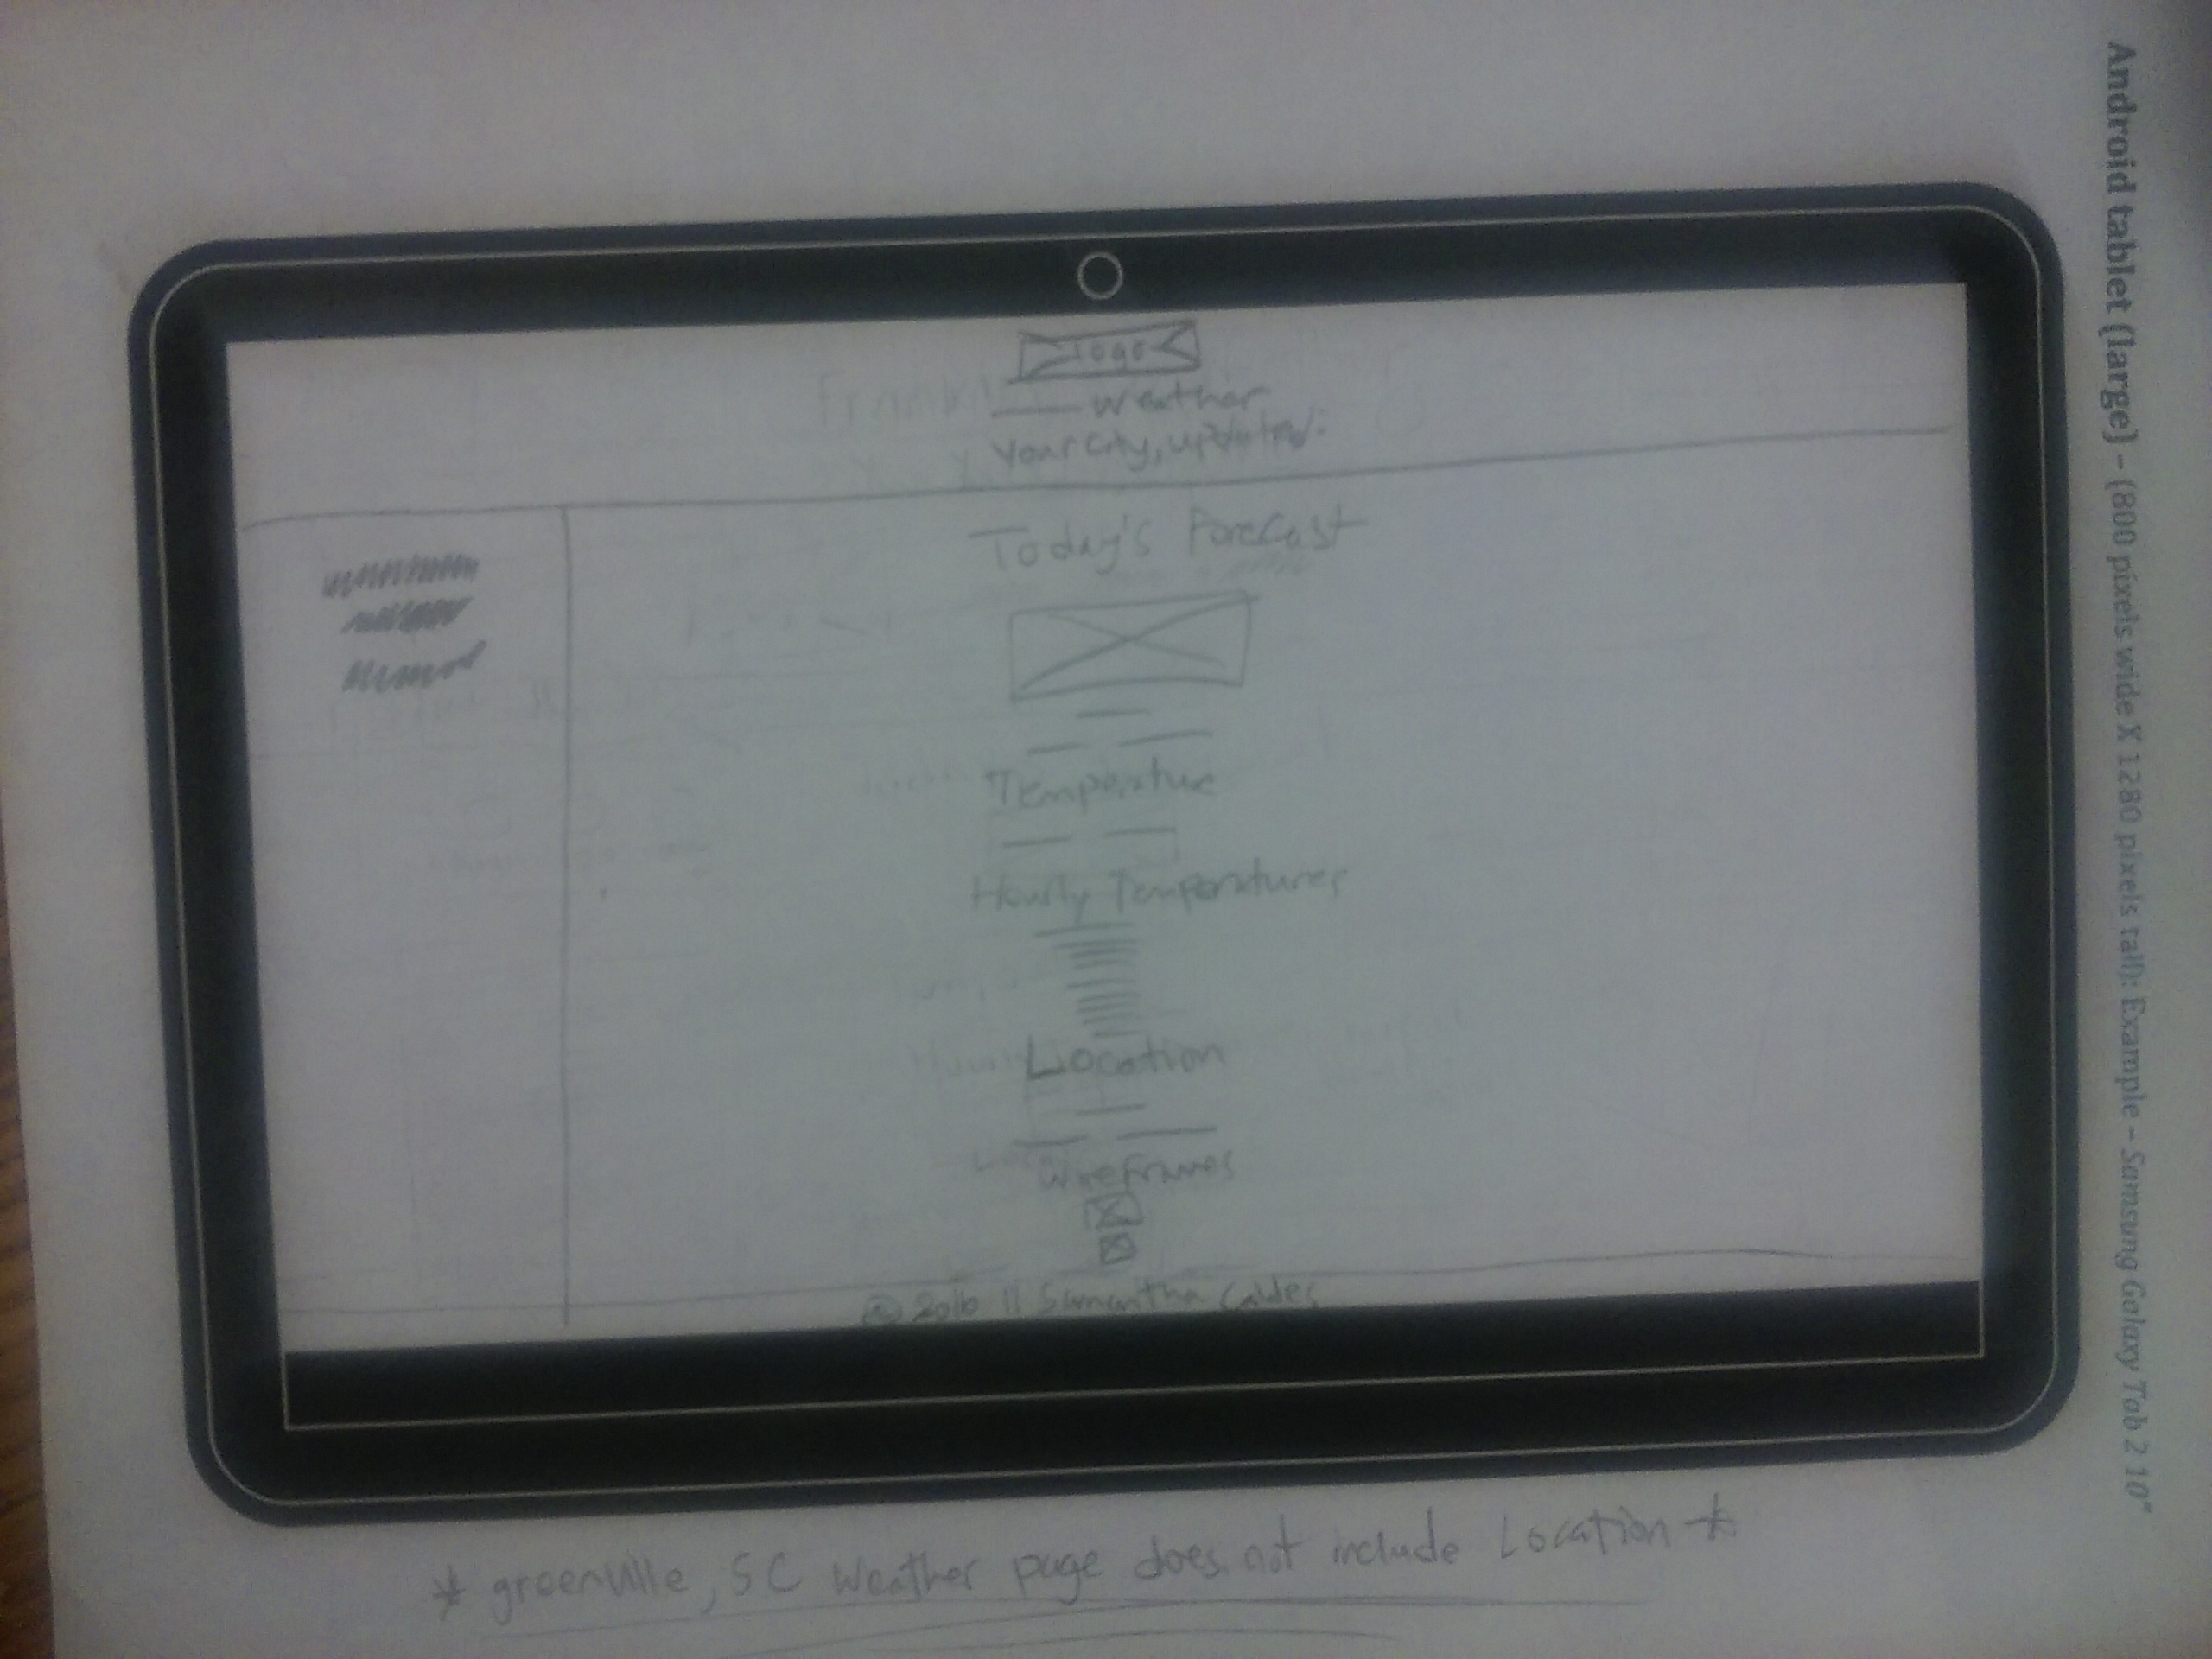 Android tablet (large) – (800 pixels wide X 1280 pixels tall): Example – Samsung Galaxy Tab 2 10"
Logo
Weather
Your city, updated.
Today's Forecast
Temperature
Hourly Temperatures
Location
Wireframes
© 2016 || Samantha
* greenville, SC Weather page does not include Location *